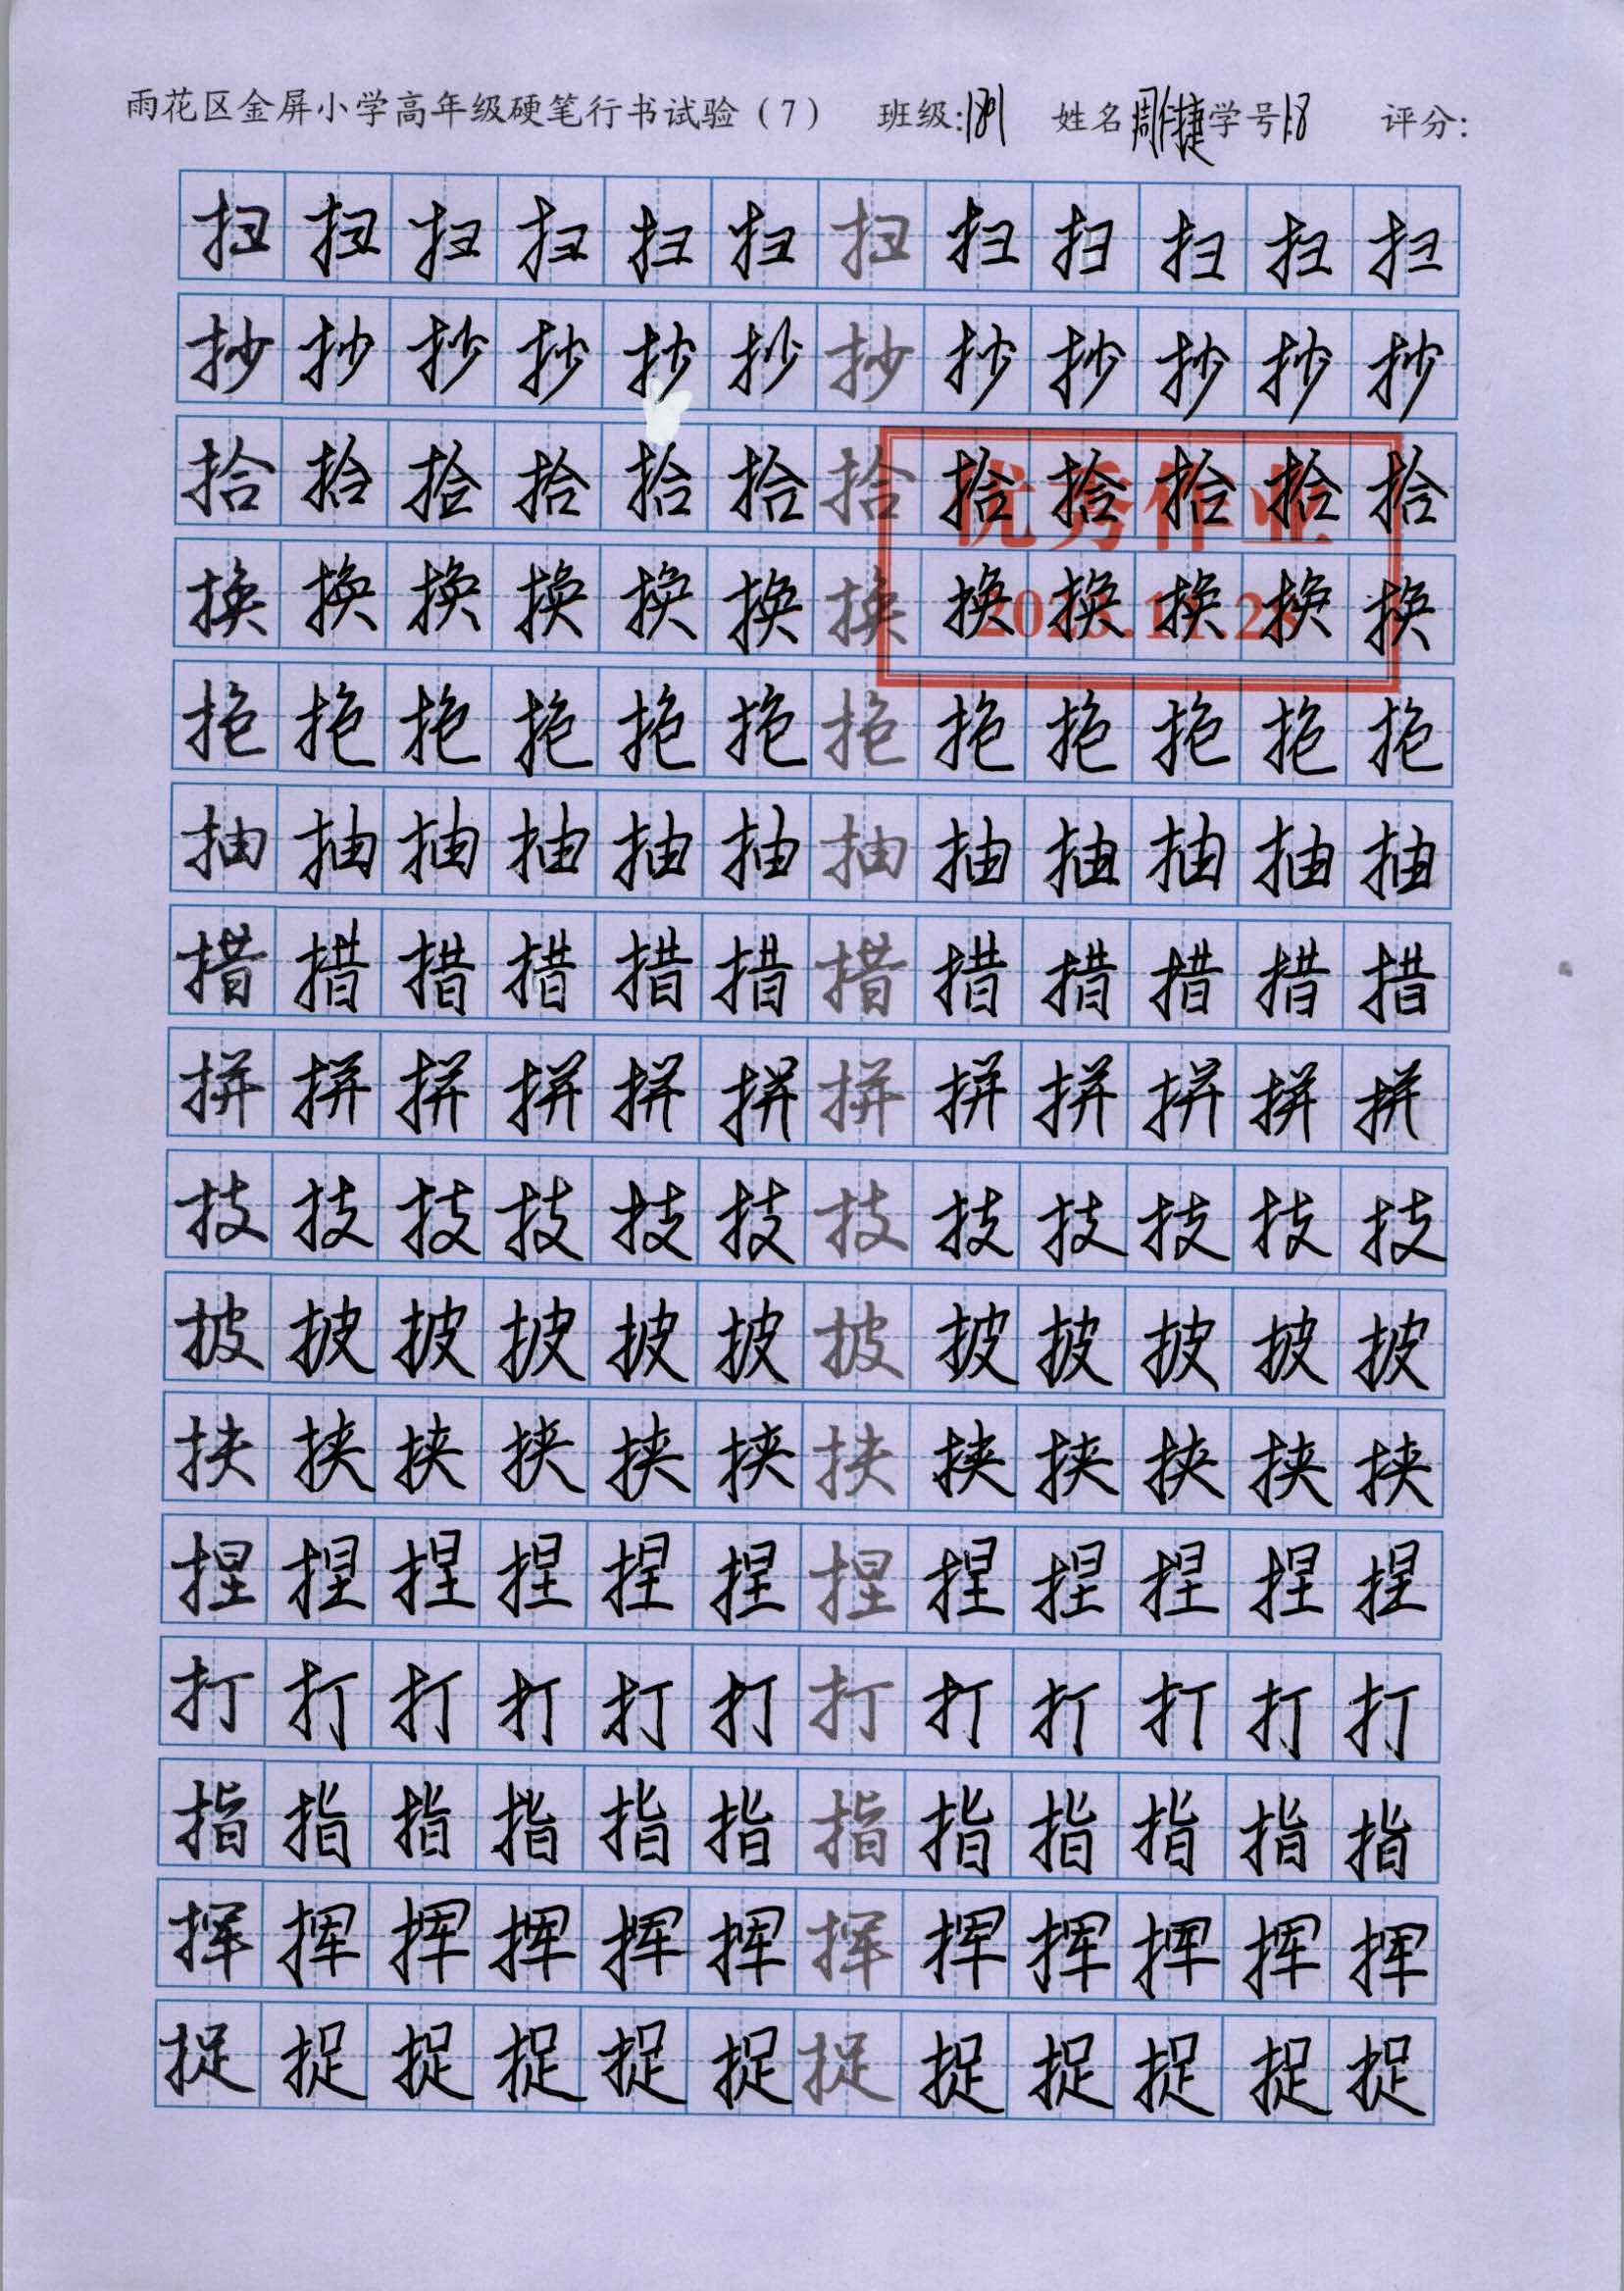 雨花区金屏小学高年级硬笔行书试验（7） 班级:1891 姓名 学号18 评分:
扫扫扫扫扫扫扫扫扫扫扫扫
抄抄抄抄抄抄抄抄抄抄抄抄
拾拾拾拾拾拾拾拾拾拾拾拾
优秀作业
换换换换换换换换换换换换
拖拖拖拖拖拖拖拖拖拖拖拖
抽抽抽抽抽抽抽抽抽抽抽抽
措措措措措措措措措措措措
拼拼拼拼拼拼拼拼拼拼拼拼
技技技技技技技技技技技技
披披披披披披披披披披披披
挟挟挟挟挟挟挟挟挟挟挟挟
捏捏捏捏捏捏捏捏捏捏捏捏
打打打打打打打打打打打打
指指指指指指指指指指指指
挥挥挥挥挥挥挥挥挥挥挥挥
捉捉捉捉捉捉捉捉捉捉捉捉